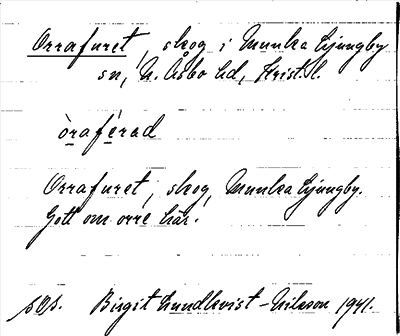 Orrafuret, skog i Munka Ljungby
sn, N. Åsbo hd, Krist. l.
òraférad
Orrafuret, skog, Munka Ljungby.
Gott om orre här.
s. 0s. Birgit Lundkvist-Nilsson 1941.